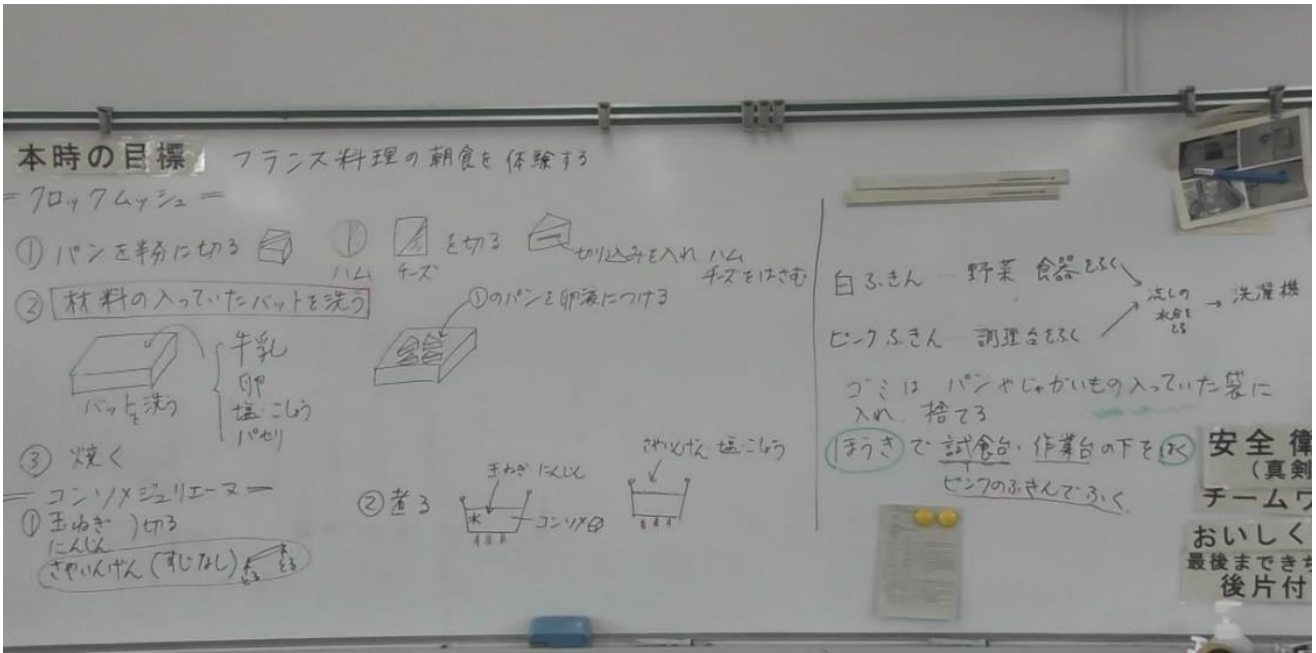 本時の目標 フランス料理の朝食を体験する
= クロックムッシュ =
① パンを半分に切る
ハム
チーズ
を切る
切り込みを入れ ハム
チーズをはさむ
② 材料の入っていたバットを洗う
①のパンを卵液につける
バットを洗う
牛乳
卵
塩・こしょう
パセリ
③ 焼く
= コンソメジュリエーヌ =
① 玉ねぎ
にんじん
切る
さやいんげん (すじなし)
とる
とる
② 煮る
玉ねぎ にんじん
水
コンソメ
さやいんげん 塩・こしょう
白ふきん 野菜 食器をふく
ピンクふきん 調理台をふく
流しの
水分を
とる
→ 洗濯機
ゴミは パンやじゃがいもの入っていた袋に
入れ 捨てる
ほうきで試食台・作業台の下をはく
ピンクのふきんでふく
安全 衛
(真剣
チームワ
おいしく
最後まできち
後片付